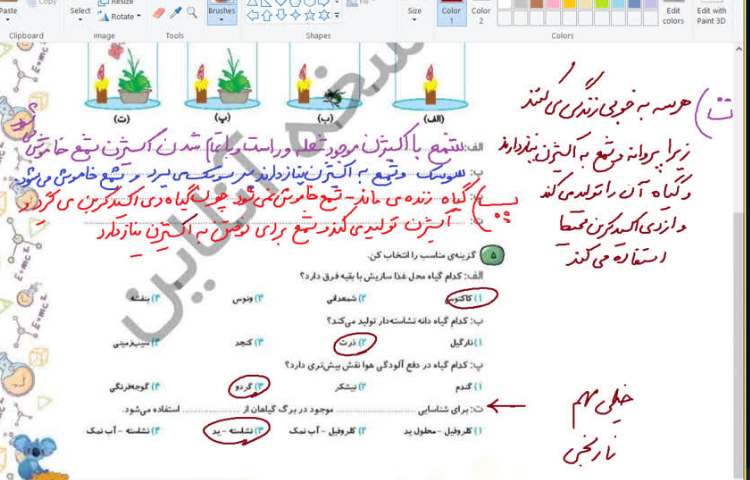 Paste
Select
Resize
Rotate
Brushes
Size
Color 1
Color 2
Edit colors
Edit with Paint 3D
Clipboard
Image
Tools
Shapes
Colors
(ت) (پ) (ب) (الف)
نسخه آنلاین
الف: شمع با اکسیژن موجود شعله ور است و با تمام شدن اکسیژن شمع خاموش می‌شود
ب: سوسک و شمع به اکسیژن نیاز دارند پس سوسک می‌میرد و شمع خاموش می‌شود.
پ) گیاه زنده می ماند - شمع خاموش نمی‌شود چون گیاه دی اکسید کربن می گیرد و
اکسیژن تولید می کند و شمع برای سوختن به اکسیژن نیاز دارد
ت) هر سه به خوبی زندگی می کنند
زیرا پروانه و شمع به اکسیژن نیاز دارند
و گیاه آن را تولید می کند
و از دی اکسید کربن محیط
استفاده می کند
۵ گزینه‌ی مناسب را انتخاب کن.
الف: کدام گیاه محل غذا سازیش با بقیه فرق دارد؟
۱) کاکتوس ۲) شمعدانی ۳) ونوس ۴) بنفشه
ب: کدام گیاه دانه نشاسته‌دار تولید می‌کند؟
۱) نارگیل ۲) ذرت ۳) کنجد ۴) سیب‌زمینی
پ: کدام گیاه در دفع آلودگی هوا نقش بیش‌تری دارد؟
۱) گندم ۲) نیشکر ۳) گردو ۴) گوجه‌فرنگی
ت: برای شناسایی .................... موجود در برگ گیاهان از .................... استفاده می‌شود.
۱) کلروفیل - محلول ید ۲) کلروفیل - آب نمک ۳) نشاسته - ید ۴) نشاسته - آب نمک
خیلی مهم
نارنجی
E=mc²
E=mc²
E=mc²